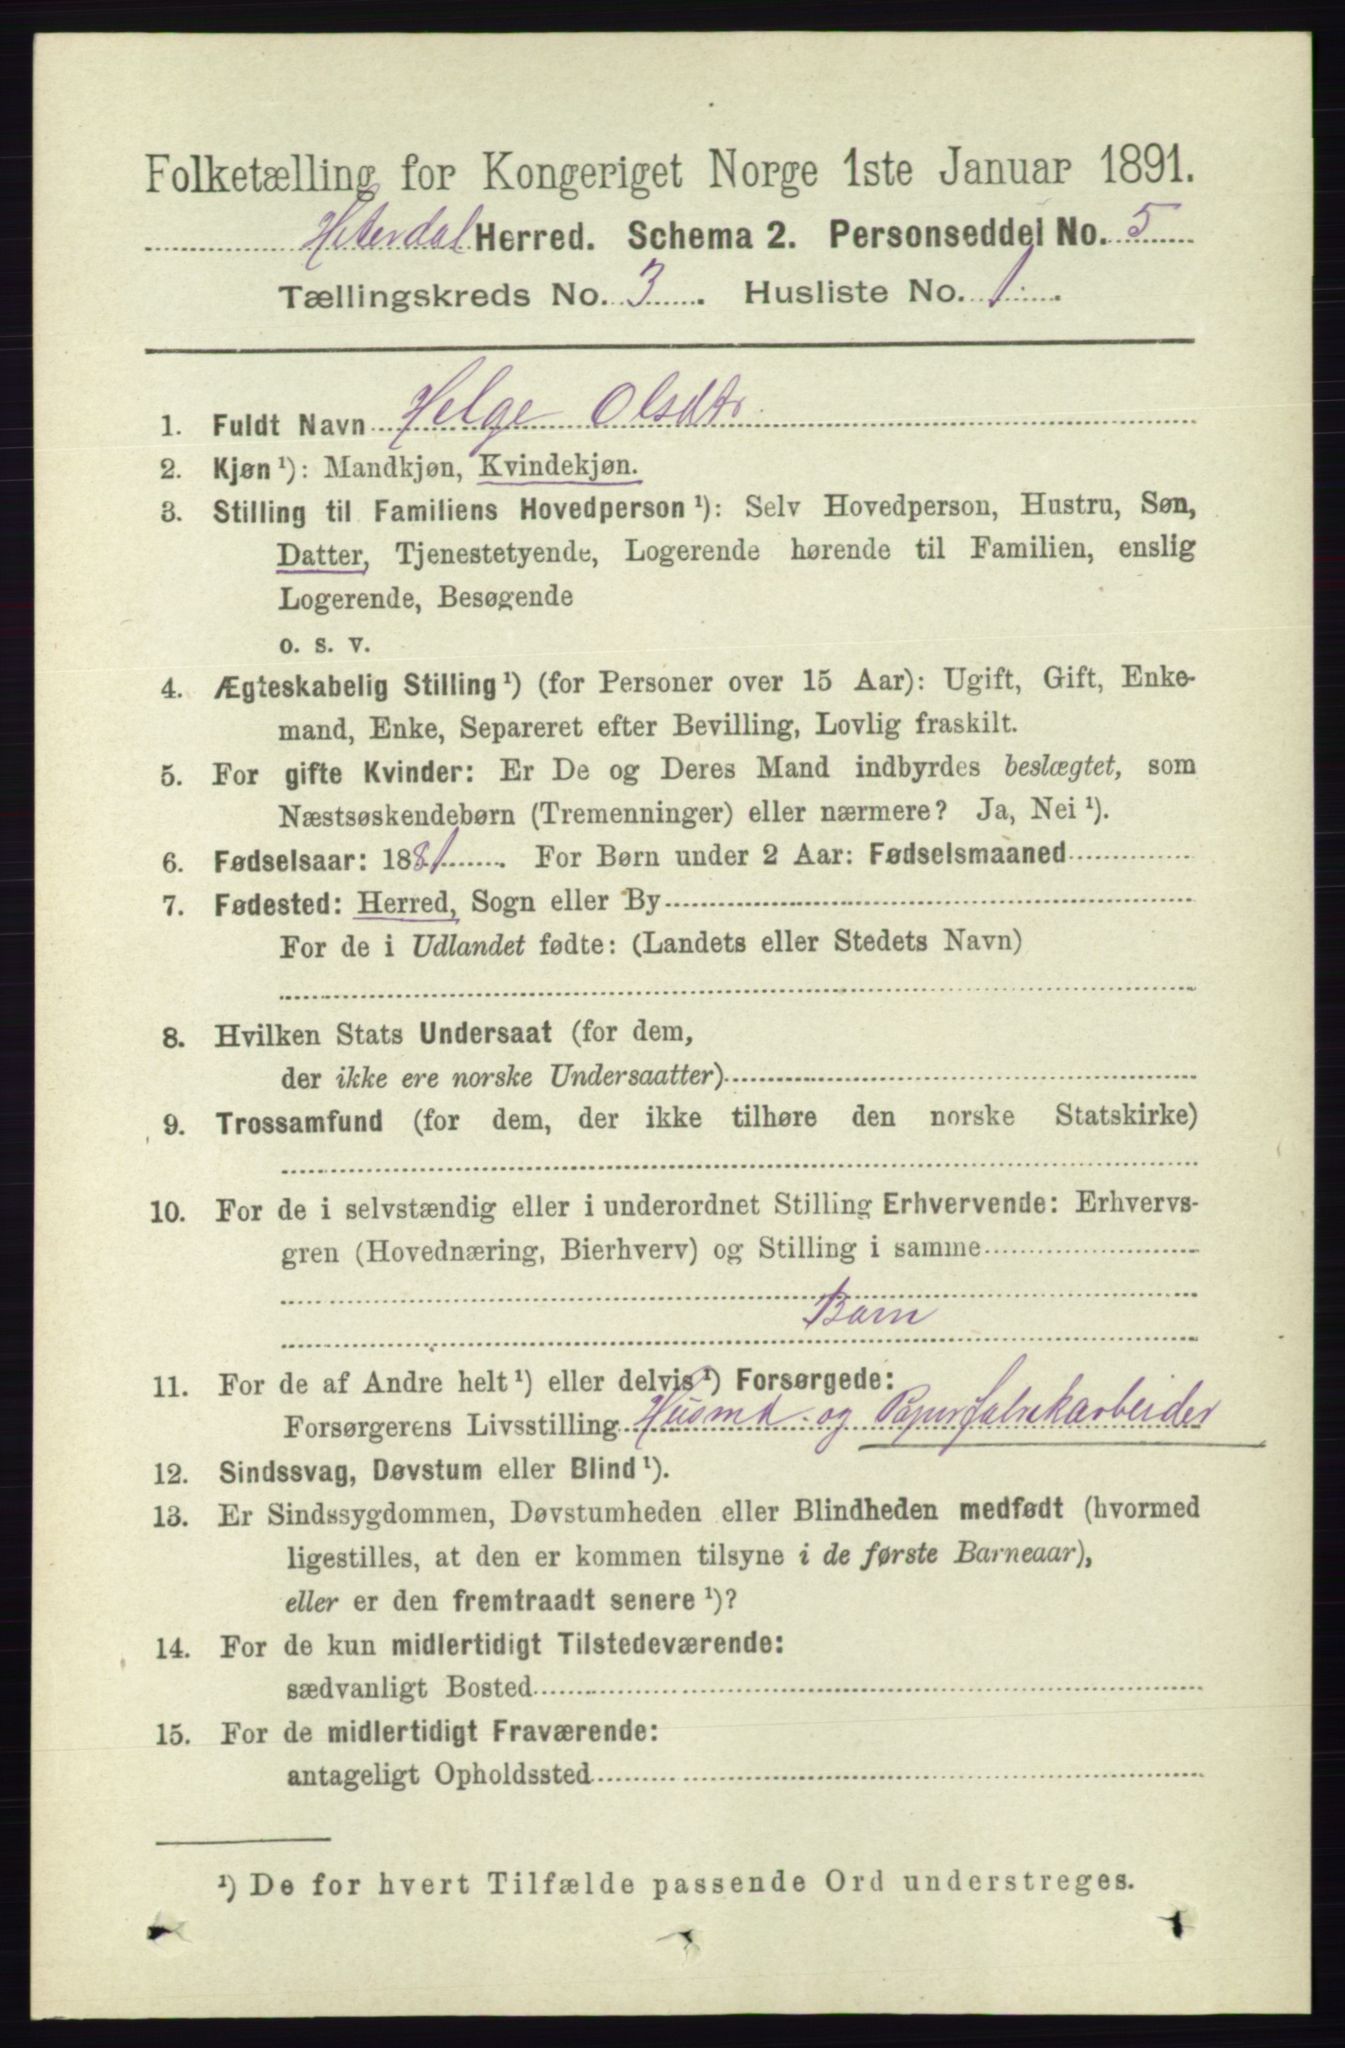 Folketælling for Kongeriget Norge 1ste Januar 1891.
Hiterdal Herred. Schema 2. Personseddel No. 5
Tællingskreds No. 3. Husliste No. 1.
1. Fuldt Navn Helge Olsdtr.
2. Kjøn ¹): Mandkjøn, Kvindekjøn.
3. Stilling til Familiens Hovedperson ¹): Selv Hovedperson, Hustru, Søn,
Datter, Tjenestetyende, Logerende hørende til Familien, enslig
Logerende, Besøgende
o. s. v.
4. Ægteskabelig Stilling ¹) (for Personer over 15 Aar): Ugift, Gift, Enke-
mand, Enke, Separeret efter Bevilling, Lovlig fraskilt.
5. For gifte Kvinder: Er De og Deres Mand indbyrdes beslægtet, som
Næstsøskendebørn (Tremenninger) eller nærmere? Ja, Nei ¹).
6. Fødselsaar: 1881. For Børn under 2 Aar: Fødselsmaaned
7. Fødested: Herred, Sogn eller By
For de i Udlandet fødte: (Landets eller Stedets Navn)
8. Hvilken Stats Undersaat (for dem,
der ikke ere norske Undersaatter)
9. Trossamfund (for dem, der ikke tilhøre den norske Statskirke)
10. For de i selvstændig eller i underordnet Stilling Erhvervende: Erhvervs-
gren (Hovednæring, Bierhverv) og Stilling i samme
Barn
11. For de af Andre helt ¹) eller delvis ¹) Forsørgede:
Forsørgerens Livsstilling Husmd. og Papirfabrikarbeider
12. Sindssvag, Døvstum eller Blind ¹).
13. Er Sindssygdommen, Døvstumheden eller Blindheden medfødt (hvormed
ligestilles, at den er kommen tilsyne i de første Barneaar),
eller er den fremtraadt senere ¹)?
14. For de kun midlertidigt Tilstedeværende:
sædvanligt Bosted
15. For de midlertidigt Fraværende:
antageligt Opholdssted
¹) De for hvert Tilfælde passende Ord understreges.